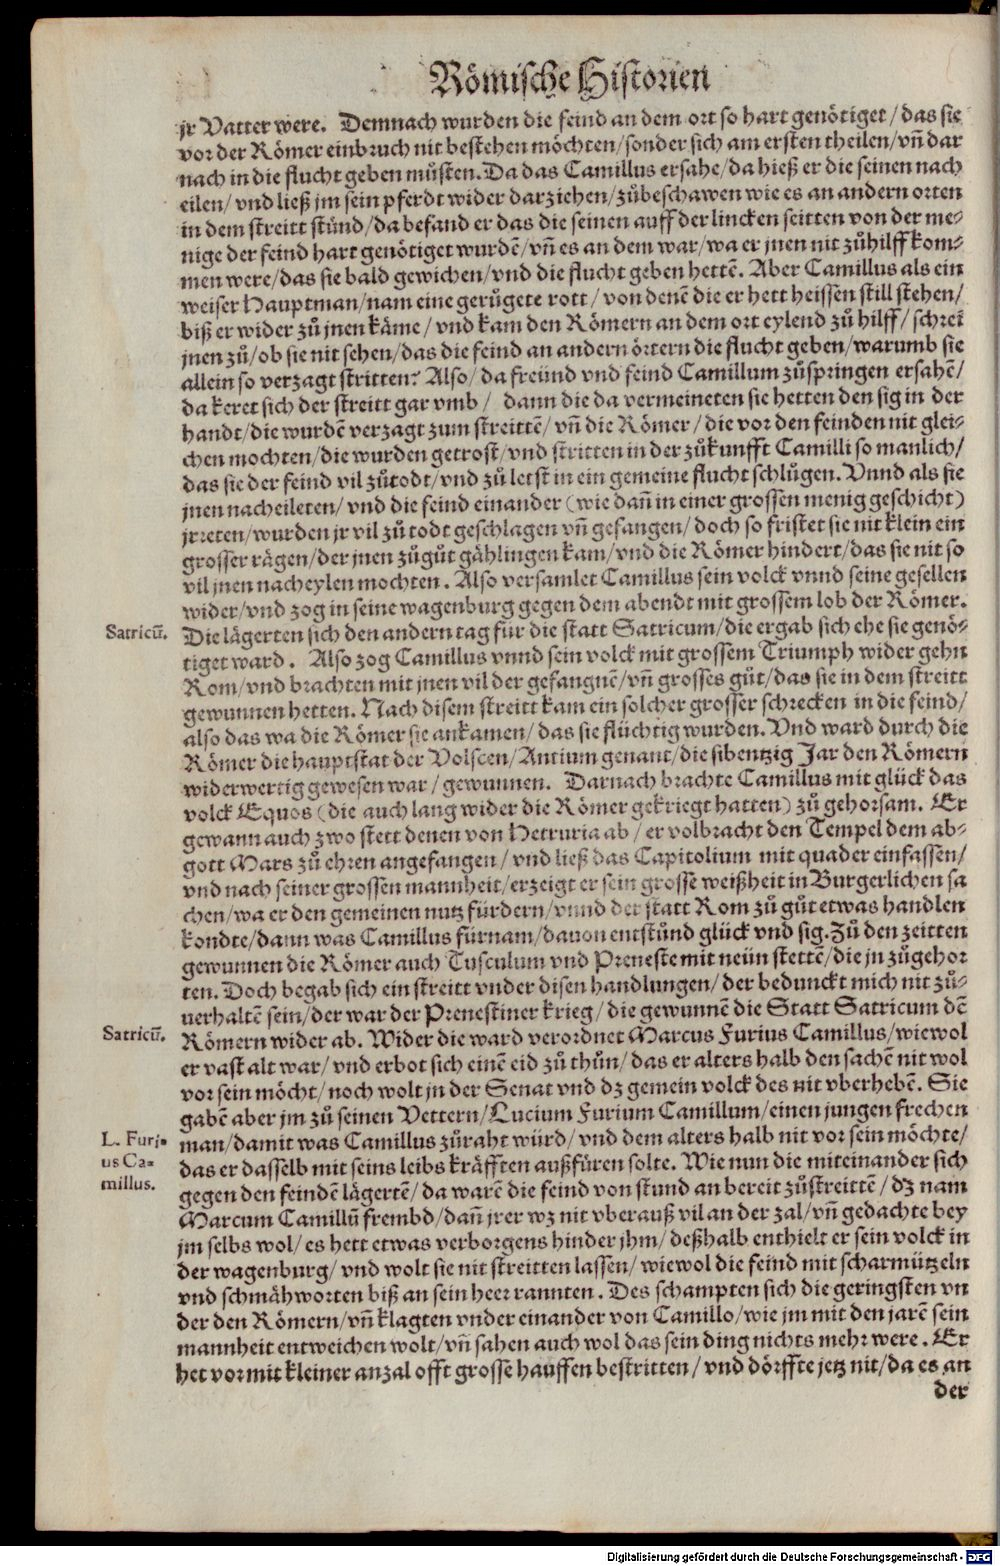 Römische Historien
jr Vatter were. Demnach wurden die feind an dem ort so hart genötiget / das sie
vor der Römer einbruch nit bestehen möchten / sonder sich am ersten theilen / vñ dar
nach in die flucht geben můsten. Da das Camillus ersahe / da hieß er die seinen nach
eilen / vnd ließ jm sein pferdt wider darziehen / zůbeschawen wie es an andern orten
in dem streitt stůnd / da befand er das die seinen auff der lincken seitten von der me-
nige der feind hart genötiget wurdẽ / vñ es an dem war / wa er jnen nit zůhilff kom-
men were / das sie bald gewichen / vnd die flucht geben hettẽ. Aber Camillus als ein
weiser Hauptman / nam eine gerůgete rott / von denẽ die er hett heissen still stehen /
biß er wider zů jnen käme / vnd kam den Römern an dem ort eylend zů hilff / schrei
jnen zů / ob sie nit sehen / das die feind an andern örtern die flucht geben / warumb sie
allein so verzagt stritten? Also / da freünd vnd feind Camillum zůspringen ersahẽ /
da keret sich der streitt gar vmb / dann die da vermeineten sie hetten den sig in der
handt / die wurdẽ verzagt zum streittẽ / vñ die Römer / die vor den feinden nit glei-
chen mochten / die wurden getrost / vnd stritten in der zůkunfft Camilli so manlich /
das sie der feind vil zůtodt / vnd zů letst in ein gemeine flucht schlůgen. Vnnd als sie
jnen nacheileten / vnd die feind einander (wie dañ in einer grossen menig geschicht)
jrreten / wurden jr vil zů todt geschlagen vñ gefangen / doch so fristet sie nit klein ein
grosser rägen / der jnen zůgůt gählingen kam / vnd die Römer hindert / das sie nit so
vil jnen nacheylen mochten. Also versamlet Camillus sein volck vnnd seine gesellen
wider / vnd zog in seine wagenburg gegen dem abendt mit grossem lob der Römer.
Satricũ.
Die lägerten sich den andern tag für die statt Satricum / die ergab sich ehe sie genö-
tiget ward. Also zog Camillus vnnd sein volck mit grossem Triumph wider gehn
Rom / vnd brachten mit jnen vil der gefangnẽ / vñ grosses gůt / das sie in dem streitt
gewunnen hetten. Nach disem streitt kam ein solcher grosser schrecken in die feind /
also das wa die Römer sie ankamen / das sie flüchtig wurden. Vnd ward durch die
Römer die hauptstat der Volscen / Antium genant / die sibentzig Jar den Römern
widerwertig gewesen war / gewunnen. Darnach brachte Camillus mit glück das
volck Equos (die auch lang wider die Römer gekriegt hatten) zů gehorsam. Er
gewann auch zwo stett denen von Hetruria ab / er volbracht den Tempel dem ab-
gott Mars zů ehren angefangen / vnd ließ das Capitolium mit quader einfassen /
vnd nach seiner grossen mannheit / erzeigt er sein grosse weißheit in Burgerlichen sa
chen / wa er den gemeinen nutz fürdern / vnnd der statt Rom zů gůt etwas handlen
kondte / dann was Camillus fürnam / dauon entstůnd glück vnd sig. Zů den zeitten
gewunnen die Römer auch Tusculum vnd Preneste mit neün stettẽ / die jn zůgehor
ten. Doch begab sich ein streitt vnder disen handlungen / der bedunckt mich nit zů-
uerhaltẽ sein / der war der Prenestiner krieg / die gewunnẽ die Statt Satricum dẽ
Satricũ.
Römern wider ab. Wider die ward verordnet Marcus Furius Camillus / wiewol
er vast alt war / vnd erbot sich einẽ eid zů thůn / das er alters halb den sachẽ nit wol
vor sein möcht / noch wolt jn der Senat vnd dz gemein volck des nit vberhebẽ. Sie
gabẽ aber jm zů seinen Vettern / Lucium Furium Camillum / einen jungen frechen
L. Furj-
us Ca-
millus.
man / damit was Camillus zůraht würd / vnd dem alters halb nit vor sein möchte /
das er dasselb mit seins leibs kräfften außfüren solte. Wie nun die miteinander sich
gegen den feindẽ lägertẽ / da warẽ die feind von stund an bereit zůstreittẽ / dz nam
Marcum Camillũ frembd / dañ jrer wz nit vberauß vil an der zal / vñ gedachte bey
jm selbs wol / es hett etwas verborgens hinder jhm / deßhalb enthielt er sein volck in
der wagenburg / vnd wolt sie nit streitten lassen / wiewol die feind mit scharmützeln
vnd schmähworten biß an sein heer rannten. Des schampten sich die geringsten vn
der den Römern / vñ klagten vnder einander von Camillo / wie jm mit den jarẽ sein
mannheit entweichen wolt / vñ sahen auch wol das sein ding nichts mehr were. Er
het vor mit kleiner anzal offt grosse hauffen bestritten / vnd dörffte jetz nit / da es an
der
Digitalisierung gefördert durch die Deutsche Forschungsgemeinschaft - DFG